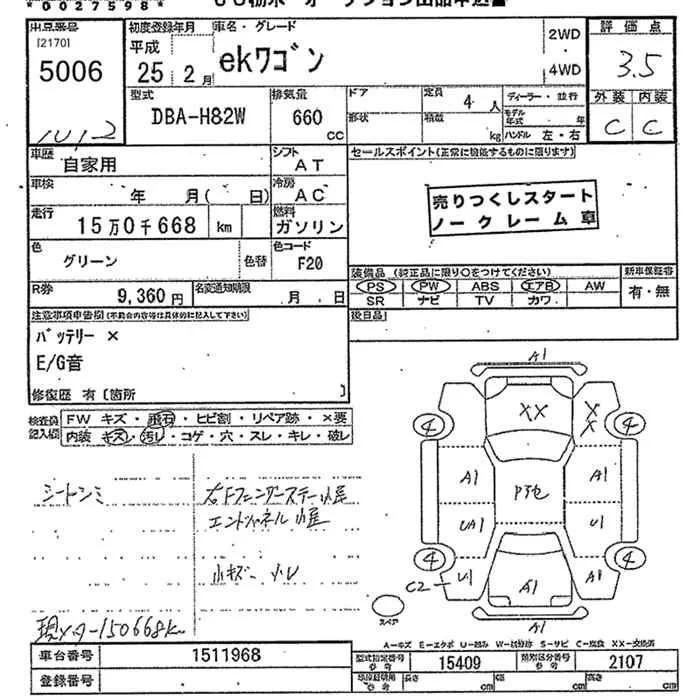 *0027598*
出品番号
[2170]
5006
初度登録年月
平成
25 2月
車名・グレード
ekワゴン
2WD
4WD
評価点
3.5
外装 内装
C C
型式
DBA-H82W
排気量
660
CC
ドア
形状
定員
4 人
積載
kg
ディーラー・並行
モデル年式 年
ハンドル 左・右
車歴
自家用
シフト
AT
セールスポイント(正常に機能するものに限ります)
売りつくしスタート
ノークレーム車
車検
年 月( 日)
冷房
AC
走行
15万0千668 km
燃料
ガソリン
色
グリーン
色替
色コード
F20
装備品 (純正品に限り○をつけてください)
新車保証書
PS PW ABS エアB AW
有・無
SR ナビ TV カワ
R券
9,360円
名変通知期限
月 日
後日品
注意事項申告欄(不具合内容等は具体的に記入して下さい)
バッテリー ×
E/G音
修復歴 有〔箇所 〕
検査員
記入欄
FW キズ・飛石・ヒビ割・リペア跡・×要
内装 キズ・汚レ・コゲ・穴・スレ・キレ・破レ
シートシミ
右Fフェンダーステー
エンドパネル
小キズ
現メーター150668km
A1
XX
X
X
4
4
A1
A1
UA1
U1
4
4
C2
U1
A1
A1
A1
スペア
A-キズ E-エクボ U-凹み W-補修跡 S-サビ C-腐食 XX-交換済
車台番号
1511968
型式指定番号
参考
15409
類別区分番号
参考
2107
登録番号
参考
長さ cm
幅 cm
高さ cm